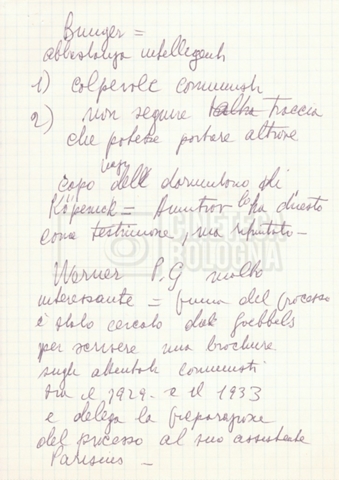 Bunger =
abbastanza intelligente
1) colpevole comunisti
2) non seguire l'altra traccia
che potesse portare altrove
capo dell dormitorio di
Köpenick = Dimitrov l'ha chiesto
come testimone, ma rifiutato -
Werner P.G molto
interessante = prima del processo
è stato cercato da Goebbels
per scrivere una brochure
sugli attentati comunisti
tra il 1929 - e il 1933
e delega la preparazione
del processo al suo assistente
Parisius -
CINETECA
BOLOGNA